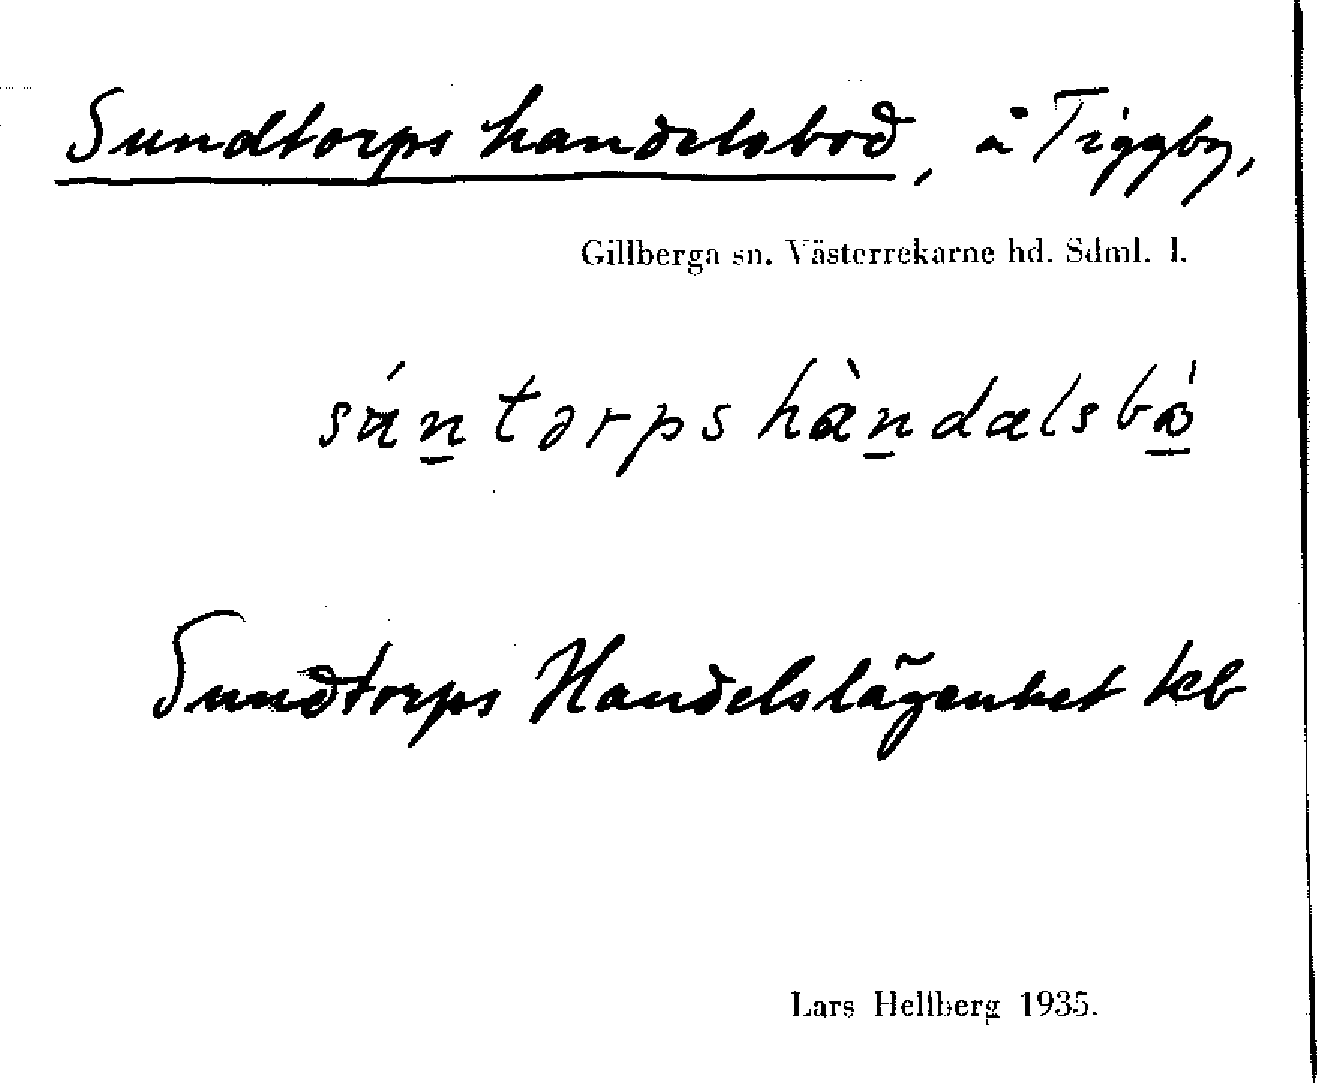 Sundtorps handelsbod, å Tiggby,
Gillberga sn. Västerrekarne hd. Sdml. l.
Sundtorps Handelslägenhet kb
Lars Hellberg 1935.